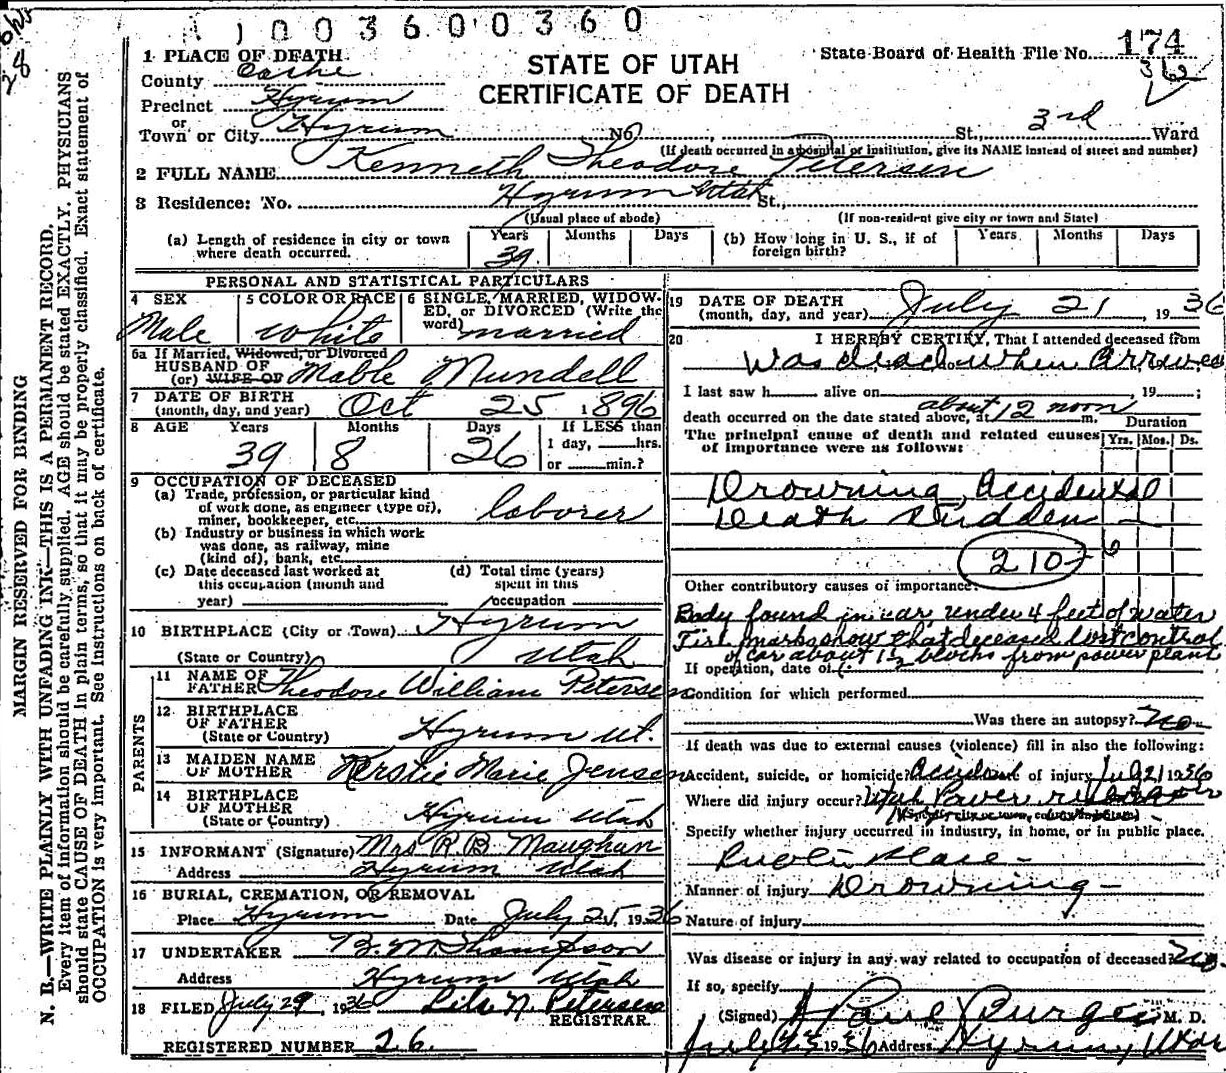 1003600360
STATE OF UTAH
CERTIFICATE OF DEATH
State Board of Health File No. 174
362
1 PLACE OF DEATH
County Cache
Precinct Hyrum
or
Town or City Hyrum No. , St., 3rd Ward
(If death occurred in a hospital or institution, give its NAME instead of street and number)
2 FULL NAME Kenneth Theodore Petersen
3 Residence: No. Hyrum Utah St.,
(Usual place of abode) (If non-resident give city or town and State)
(a) Length of residence in city or town where death occurred. Years 39 Months Days
(b) How long in U. S., if of foreign birth? Years Months Days
PERSONAL AND STATISTICAL PARTICULARS
4 SEX Male
5 COLOR OR RACE white
6 SINGLE, MARRIED, WIDOWED, or DIVORCED (Write the word) married
6a If Married, Widowed, or Divorced
HUSBAND OF
(or) WIFE OF Mable Mundell
7 DATE OF BIRTH
(month, day, and year) Oct 25 1896
8 AGE Years 39 Months 8 Days 26 If LESS than
1 day, hrs.
or min.?
9 OCCUPATION OF DECEASED
(a) Trade, profession, or particular kind
of work done, as engineer (type of),
miner, bookkeeper, etc. laborer
(b) Industry or business in which work
was done, as railway, mine
(kind of), bank, etc.
(c) Date deceased last worked at
this occupation (month and
year)
(d) Total time (years)
spent in this
occupation
10 BIRTHPLACE (City or Town) Hyrum
(State or Country) Utah
PARENTS
11 NAME OF
FATHER Theodore William Petersen
12 BIRTHPLACE
OF FATHER
(State or Country) Hyrum Ut.
13 MAIDEN NAME
OF MOTHER Kerstie Marie Jensen
14 BIRTHPLACE
OF MOTHER
(State or Country) Hyrum Utah
15 INFORMANT (Signature) Mrs R B Maughan
Address Hyrum Utah
16 BURIAL, CREMATION, OR REMOVAL
Place Hyrum Date July 25, 1936
17 UNDERTAKER B. M. Thompson
Address Hyrum Utah
18 FILED July 29, 1936 Lila N. Petersen
REGISTRAR.
REGISTERED NUMBER 26.
19 DATE OF DEATH
(month, day, and year) July 21, 1936
20 I HEREBY CERTIFY, That I attended deceased from
Was dead when arrived
I last saw h alive on , 19 ;
death occurred on the date stated above, at about 12 noon m.
The principal cause of death and related causes
of importance were as follows:
Duration
Yrs. Mos. Ds.
Drowning, Accidental
Death Sudden -
210-6
Other contributory causes of importance:
Body found in car, under 4 feet of water
Tire marks show that deceased lost control
of car about 1 1/2 blocks from power plant
If operation, date of
Condition for which performed
Was there an autopsy? No.
If death was due to external causes (violence) fill in also the following:
Accident, suicide, or homicide? Accident of injury July 21 1936
Where did injury occur? Utah Power
(Specify city or town, county and State)
Specify whether injury occurred in industry, in home, or in public place.
Public Place -
Manner of injury Drowning -
Nature of injury
Was disease or injury in any way related to occupation of deceased? No.
If so, specify
(Signed) Paul Burgess M. D.
July 23 1936 Address Hyrum, Utah
MARGIN RESERVED FOR BINDING
N. B.—WRITE PLAINLY WITH UNFADING INK—THIS IS A PERMANENT RECORD.
Every item of information should be carefully supplied. AGE should be stated EXACTLY. PHYSICIANS
should state CAUSE OF DEATH in plain terms, so that it may be properly classified. Exact statement of
OCCUPATION is very important. See instructions on back of certificate.